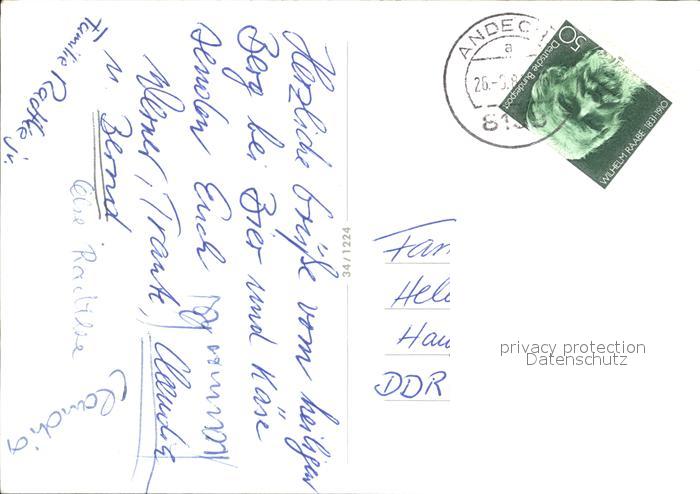 Herzliche Grüße vom heiligen
Berg bei Bier und Käse
senden Euch
Werner, Traute, Claudia
u. Bernd
Familie Radtke jr.
Claudia
34/1224
ANDECHS
a
26.-9.8
813
50
Deutsche Bundespost
WILHELM RAABE 1831-1910
Fam
Hel
Hau
DDR
privacy protection
Datenschutz